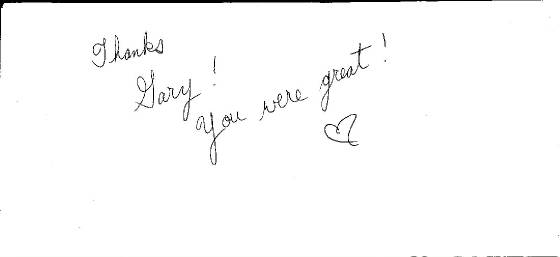 Thanks
Gary!
You were great!